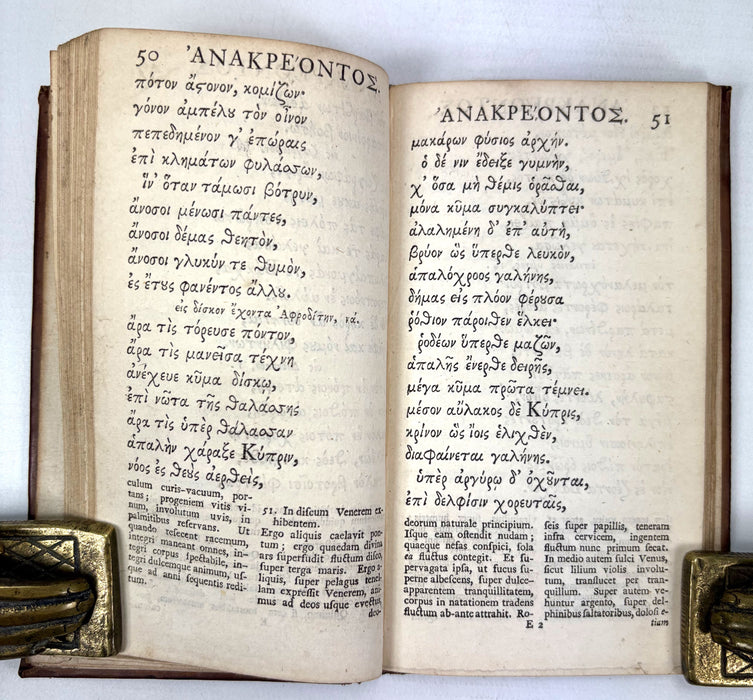 50 ἈΝΑΚΡΕΌΝΤΟΣ.
πότον ἄτονον, κομίζων·
γόνον ἀμπέλου τὸν οἶνον
πεπεδημένον γ' ἐπώραις
ἐπὶ κλημάτων φυλάσσων,
ἵν' ὅταν τάμωσι βότρυν,
ἄνοσοι μένωσι πάντες,
ἄνοσοι δέμας θεητὸν,
ἄνοσοι γλυκύν τε θυμὸν,
ἐς ἔτους φανέντος ἄλλου.
εἰς δίσκον ἔχοντα Ἀφροδίτην, νά.
ἄρα τίς τόρευσε πόντον,
ἄρα τὶς μανεῖσα τέχνη
ἀνέχευε κῦμα δίσκῳ,
ἐπὶ νῶτα τῆς θαλάσσης
ἄρα τὶς ὑπὲρ θάλασσαν
ἁπαλὴν χάραξε Κύπριν,
νόος ἐς θεοὺς ἀερθεὶς,
culum curis-vacuum, por-
tans; progeniem vitis vi-
num, involutum uvis, in
palmitibus reservans. Ut
quando resecent racemum,
integri maneant omnes, in-
tegri corpus spectabile, in-
tegri dulcemque animum, us-
que ad anni sequentis redi-
tum.
51. In discum Venerem ex-
hibentem.
Ergo aliquis caelavit pon-
tum; ergo quaedam divina
ars superfudit fluctum disco,
super terga maris. Ergo a-
liquis, super pelagus tenel-
lam expressit Venerem, ani-
mus ad deos usque evectus,
deo-
ἈΝΑΚΡΕΌΝΤΟΣ. 51
μακάρων φύσιος ἀρχήν.
ὁ δέ νιν ἔδειξε γυμνὴν,
χ' ὅσα μὴ θέμις ὁρᾶσθαι,
μόνα κῦμα συγκαλύπτει·
ἀλαλημένη δ' ἐπ' αὐτὴ,
βρύον ὣς ὕπερθε λευκὸν,
ἁπαλόχροος γαλήνης,
δήμας εἰς πλόον φέρουσα
ῥόθιον πάροιθεν ἕλκει·
ῥοδέων ὕπερθε μαζῶν,
ἁπαλῆς ἔνερθε δειρῆς,
μέγα κῦμα πρῶτα τέμνει.
μέσον αὔλακος δὲ Κύπρις,
κρίνον ὣς ἴοις ἑλιχθὲν,
διαφαίνεται γαλήνης.
ὑπὲρ ἀργύρῳ δ' ὀχοῦνται,
ἐπὶ δελφίσιν χορευταῖς,
deorum naturale principium.
Isque eam ostendit nudam;
quaeque nefas conspici, sola
ea fluctus contegit. Et su-
pervagata ipsa, ut fucus su-
perne albescens, super dulce-
apparentem tranquillitatem,
corpus in natationem tradens
fluctum ab-ante attrahit. Ro-
seis super papillis, teneram
infra cervicem, ingentem
fluctum nunc primum secat.
In medio autem sulci Venus,
sicut lilium violis involu-
tum, translucet per tran-
quillum. Super autem ve-
huntur argento, super del-
phinibus saltatoribus, dolosi e-
E 2
etiam